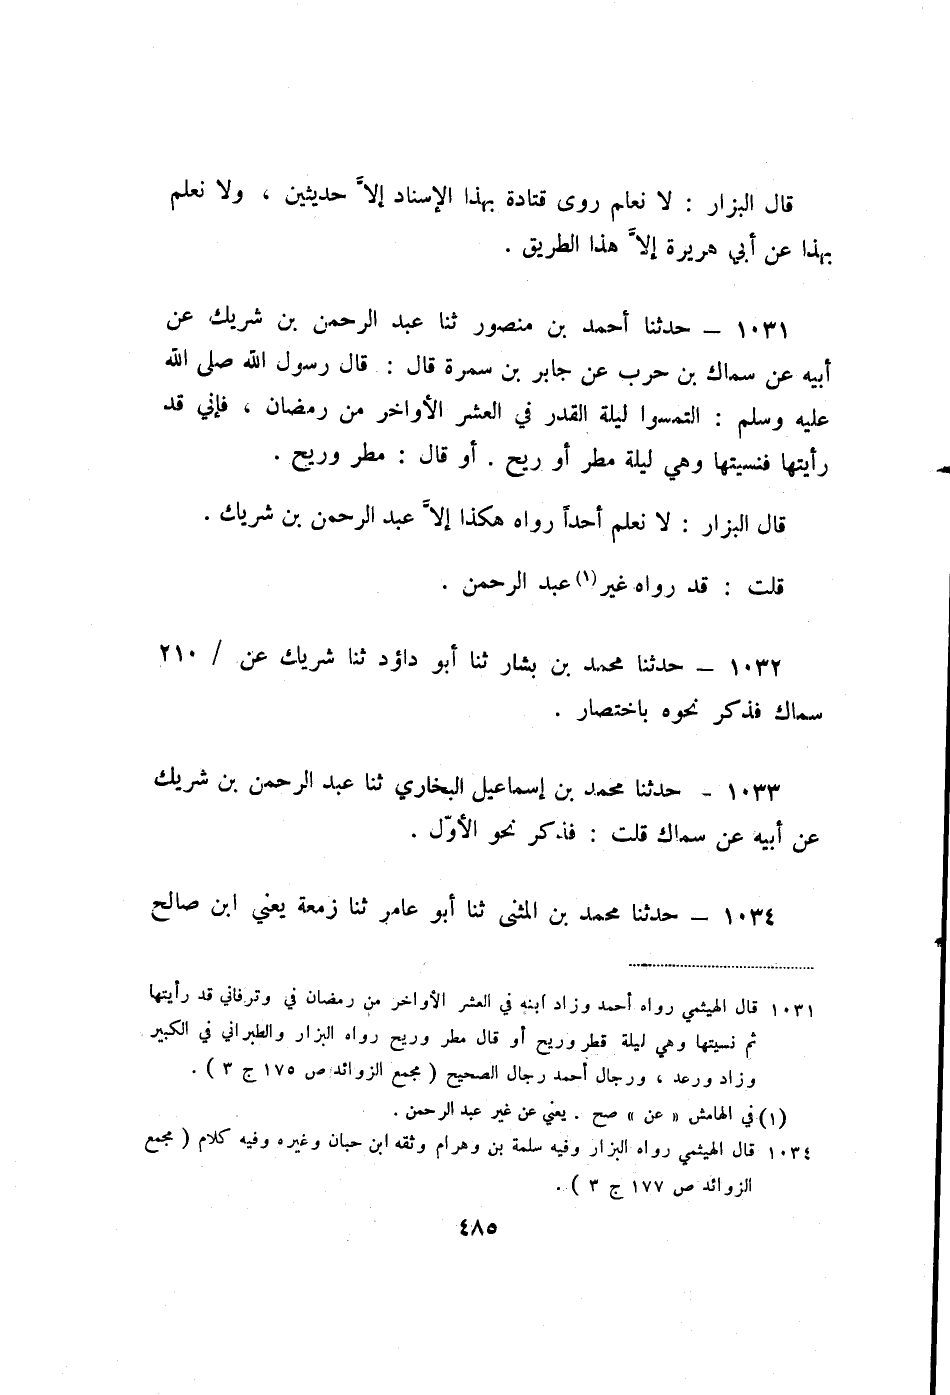 قال البزار : لا نعام روى قتادة بهذا الإسناد إلاَّ حديثين ، ولا نعلم
بهذا عن أبي هريرة إلاَّ هذا الطريق .
١٠٣١ – حدثنا أحمد بن منصور ثنا عبد الرحمن بن شريك عن
أبيه عن سماك بن حرب عن جابر بن سمرة قال : قال رسول الله صلى الله
عليه وسلم : التمسوا ليلة القدر في العشر الأواخر من رمضان ، فإني قد
رأيتها فنسيتها وهي ليلة مطر أو ريح . أو قال : مطر وريح .
قال البزار : لا نعلم أحداً رواه هكذا إلاَّ عبد الرحمن بن شريك .
قلت : قد رواه غير (١) عبد الرحمن .
١٠٣٢ – حدثنا محمد بن بشار ثنا أبو داؤد ثنا شريك عن / ٢١٠
سماك فذكر نحوه باختصار .
١٠٣٣ - حدثنا محمد بن إسماعيل البخاري ثنا عبد الرحمن بن شريك
عن أبيه عن سماك قلت : فذكر نحو الأوّل .
١٠٣٤ – حدثنا محمد بن المثنى ثنا أبو عامر ثنا زمعة يعني ابن صالح
١٠٣١ قال الهيثمي رواه أحمد وزاد ابنه في العشر الأواخر من رمضان في وترفاني قد رأيتها
ثم نسيتها وهي ليلة قطر وريح أو قال مطر وريح رواه البزار والطبراني في الكبير
وزاد ورعد ، ورجال أحمد رجال الصحيح ( مجمع الزوائد ص ١٧٥ ج ٣ ) .
(١) في الهامش « عن » صح . يعني عن غير عبد الرحمن .
١٠٣٤ قال الهيثمي رواه البزار وفيه سلمة بن وهرام وثقه ابن حبان وغيره وفيه كلام ( مجمع
الزوائد ص ١٧٧ ج ٣ ) .
٤٨٥